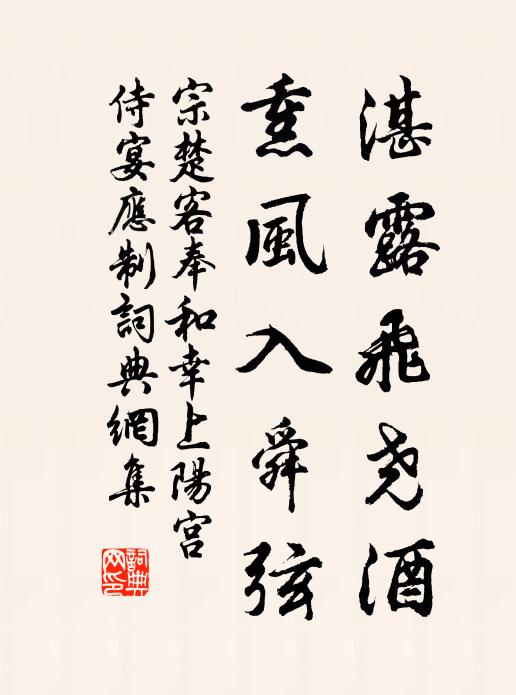 湛露飛尧酒
熏風入舜弦
宗楚客奉和幸上陽宫
侍宴應制詞典網集
詞典网印